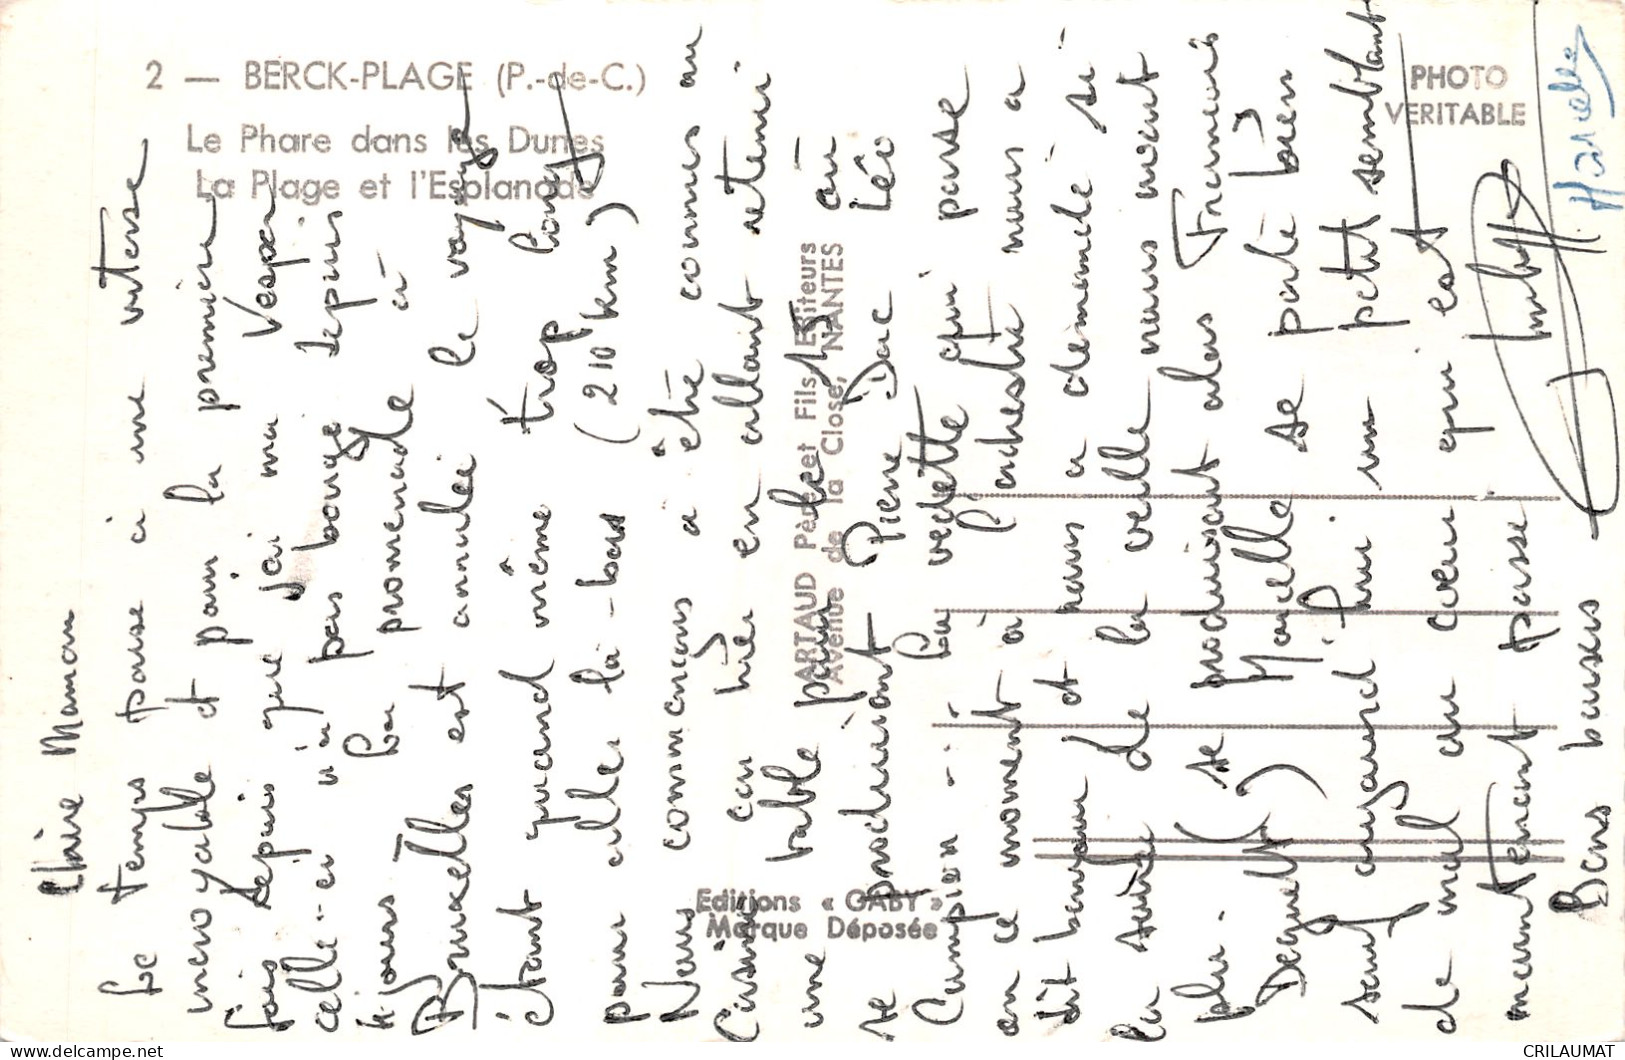 2 — BERCK-PLAGE (P.-de-C.)
Le Phare dans les Dunes
La Plage et l'Esplanade
PHOTO
VERITABLE
ARTAUD Père et Fils, Editeurs
Avenue de la Close, NANTES
Editions « GABY »
Marque Déposée
Chère Maman
Le temps passe à une vitesse
incroyable et pour la première
fois depuis que j'ai ma Vespa
celle-ci n'a pas bougé depuis
jours La promenade à
Bruxelles est annulée le voyage
étant quand même trop long
pour aller là-bas (210 km)
Nous commençons à être connus au
Casino car hier en allant retenir
une table pour le 15 où
se produiront Pierre Dac Léo
Campion... la vedette qui passe
en ce moment à l'orchestre nous a
dit bonjour et nous a demandé si
la soirée de la veille nous avait
plu. (se produisent alors Fernand
Deguelt) Marcelle se porte bien
sauf aujourd'hui un petit semblant
de mal au cœur qui est
maintenant passé
Bons baisers
Marcelle
CRILAUMAT